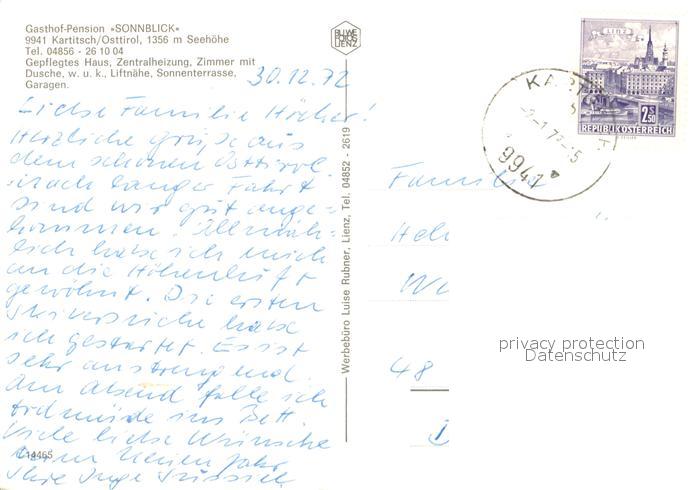 Gasthof-Pension »SONNBLICK«
9941 Kartitsch/Osttirol, 1356 m Seehöhe
Tel. 04856 - 26 10 04
Gepflegtes Haus, Zentralheizung, Zimmer mit
Dusche, w. u. k., Liftnähe, Sonnenterrasse,
Garagen.
30.12.72
Liebe Familie Höcher!
Herzliche Grüße aus
dem schönen Osttirol.
Nach langer Fahrt
sind wir gut ange-
kommen. Allmäh-
lich habe ich mich
an die Höhenluft
gewöhnt. Die ersten
Skiversuche habe
ich gestartet. Es ist
sehr anstrengend.
Am Abend falle ich
todmüde ins Bett.
Viele liebe Wünsche
beim Neuen Jahr
Ihre Inge
14465
Werbebüro Luise Rubner, Lienz, Tel. 04852 - 2619
BLIWE
FOTOS
LIENZ
LINZ
2S50
REPUBLIK ÖSTERREICH
9941
Familie
48
privacy protection
Datenschutz